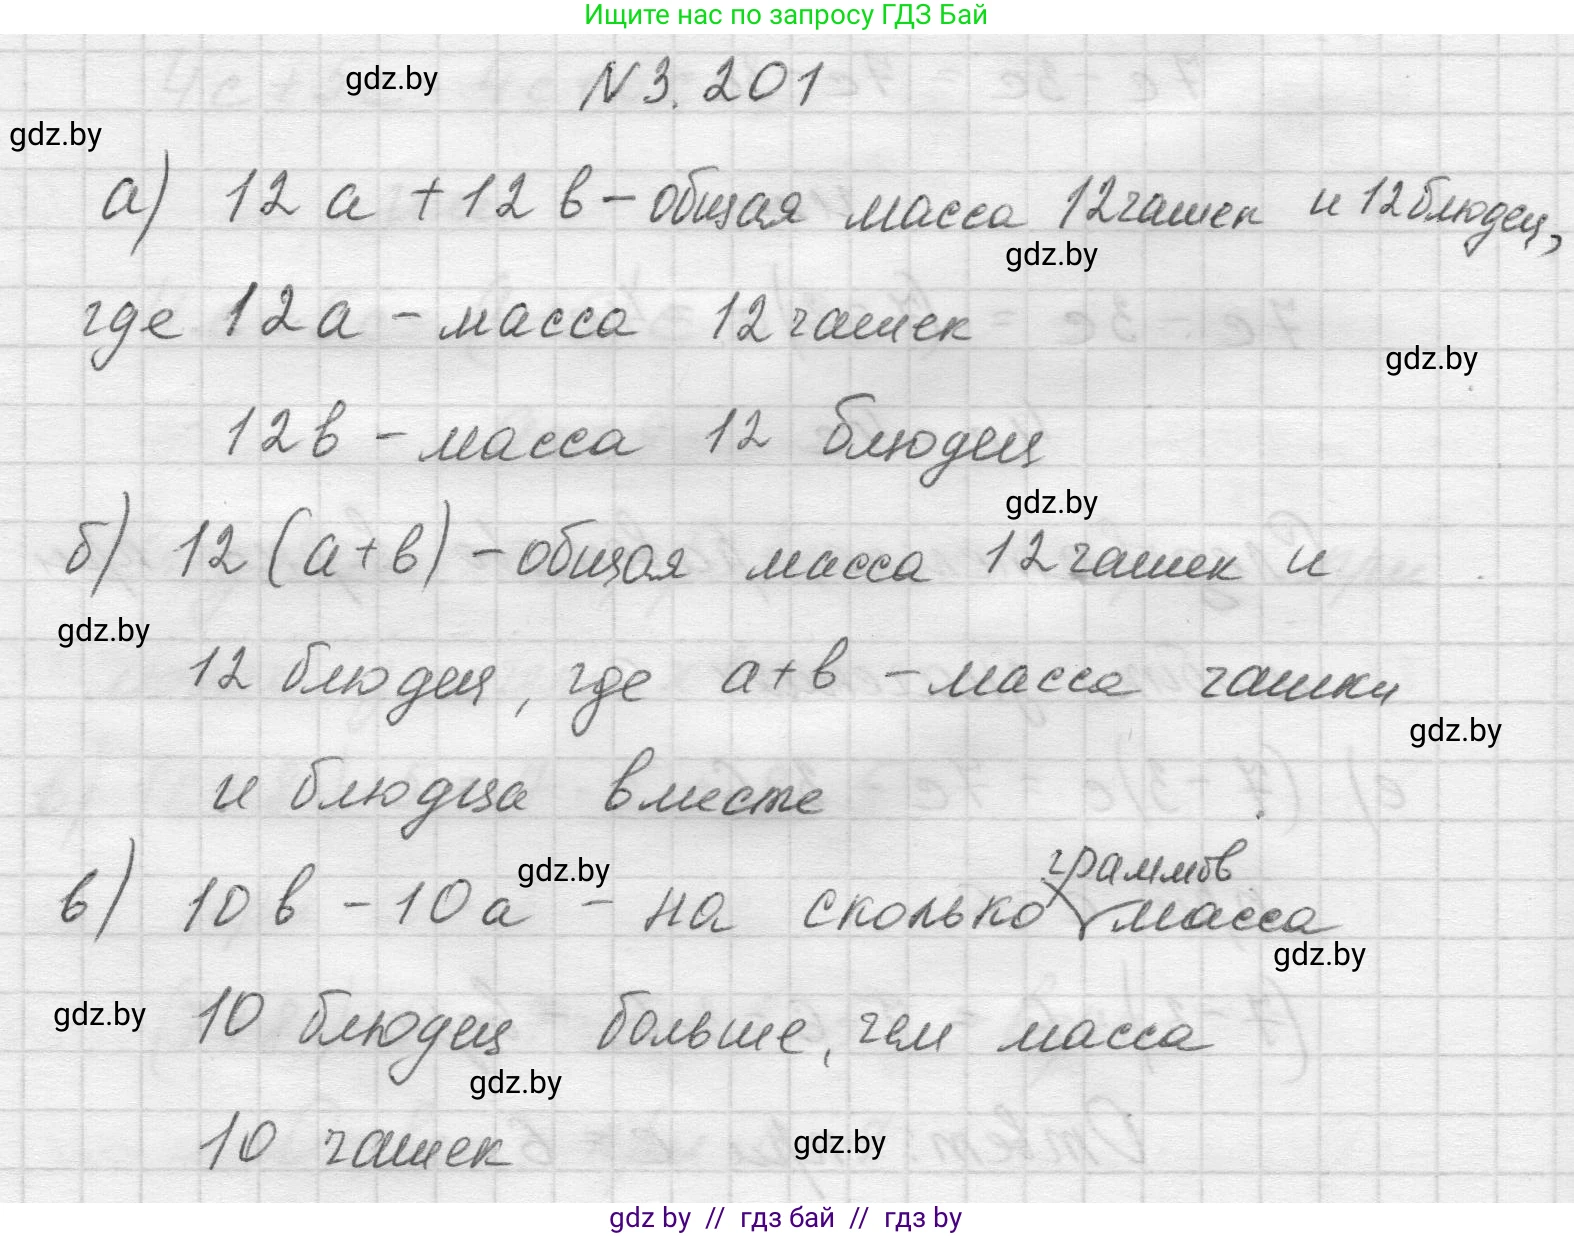 Ищите нас по запросу ГДЗ Бай
gdz.by
N 3.201
gdz.by
а) 12 а + 12 в – общая масса 12 чашек и 12 блюдец,
gdz.by
где 12 а – масса 12 чашек
gdz.by
12 в – масса 12 блюдец
gdz.by
б) 12 (а + в) – общая масса 12 чашек и
gdz.by
12 блюдец, где а + в – масса чашки
gdz.by
и блюдца вместе
граммов
gdz.by
в) 10 в – 10 а – на сколько масса
gdz.by
gdz.by
10 блюдец больше, чем масса
gdz.by
10 чашек
gdz.by
gdz by // гдз бай // гдз by